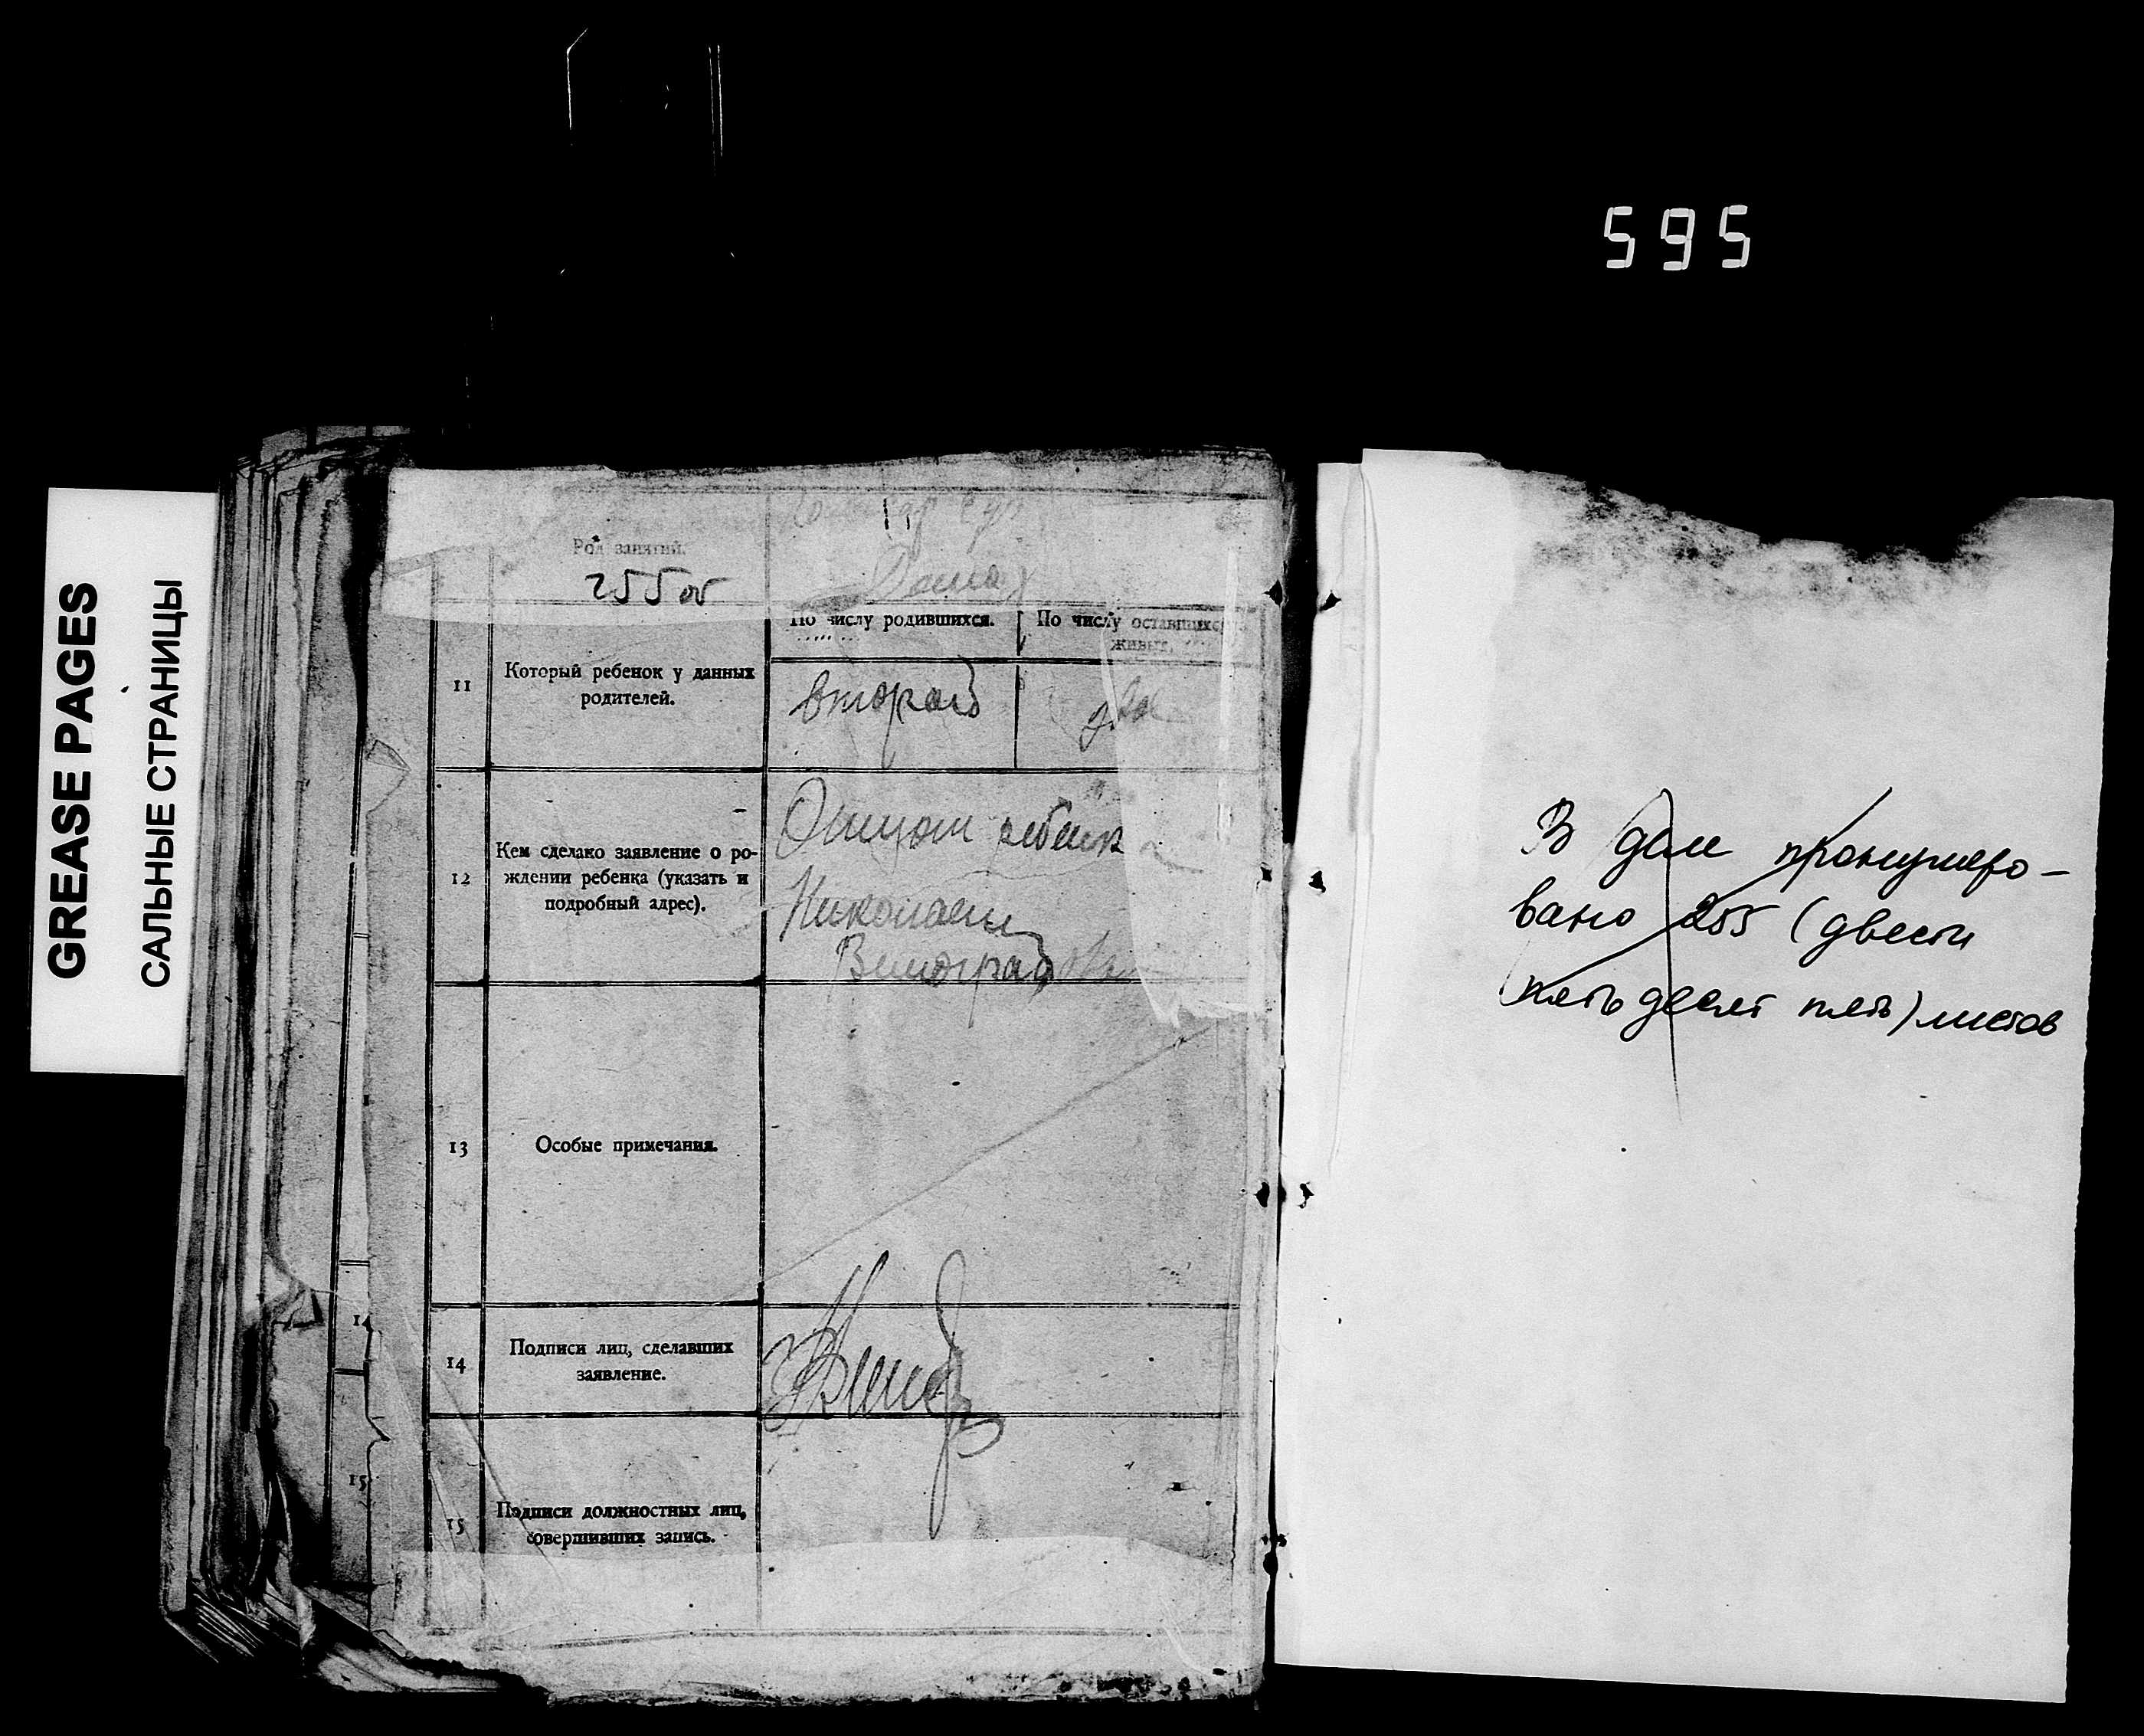 595
GREASE PAGES
САЛЬНЫЕ СТРАНИЦЫ
Род занятий.
255 об
По числу родившихся.
По числу оставшихся
живых.
11
Который ребенок у данных
родителей.
второй
два
12
Кем сделано заявление о ро-
ждении ребенка (указать и
подробный адрес).
Отцом ребенка
Николаем
Виноградов
13
Особые примечания.
14
14
Подписи лиц, сделавших
заявление.
15
15
Подписи должностных лиц,
совершивших запись.
В деле пронумеро-
вано 255 (двести
пятьдесят пять) листов